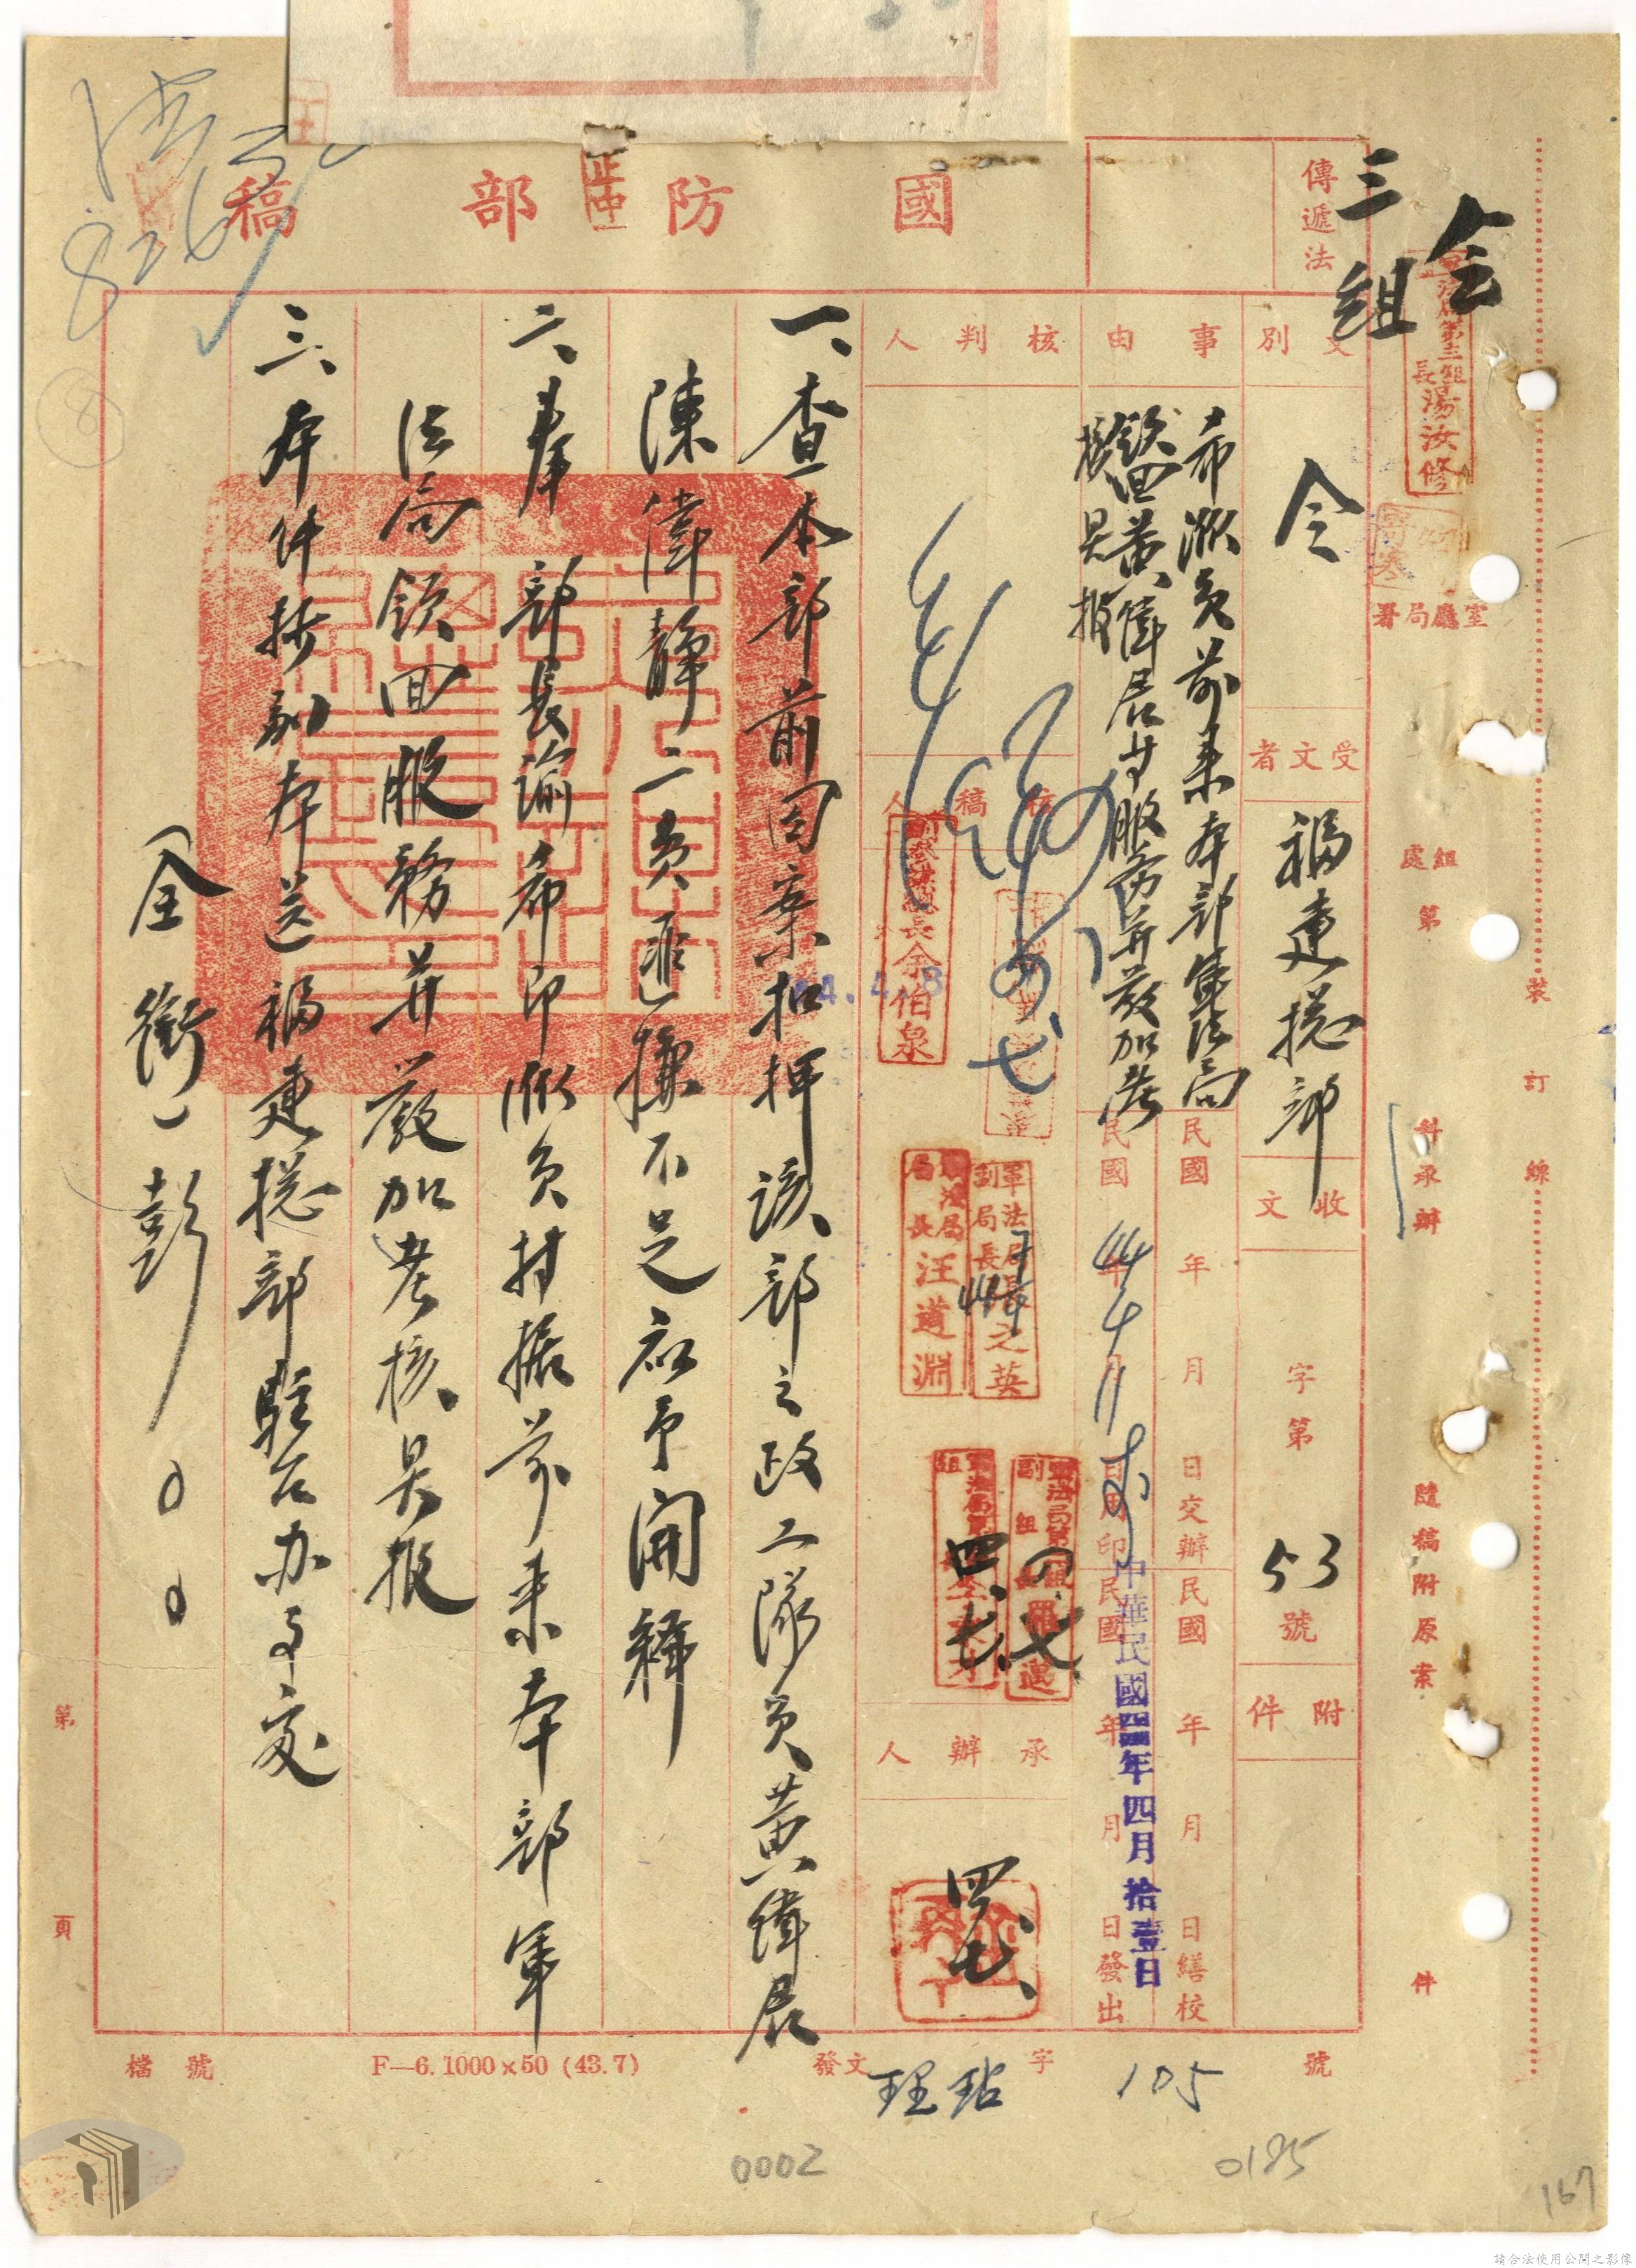 國防部稿
會
三組
軍法局第三組組長湯汝修
傳遞法
文別
令
受文者
福建總部
收文
字第
53
號
附件
事由
希派員前來本部軍法局
領回黃偉展等服務并嚴加考
核具報
民國 年 月 日交辦
民國 年 月 日繕校
民國 年 月 日用印
44 4 11
民國 年 月 日發出
中華民國四四年四月拾壹日
核判人
核稿人
余伯泉
軍法局副局長
之英
軍法局局長汪道淵
軍法局第 組副組長
四七
承辦人
四七
一、查本部前因案扣押該部之政工隊員黃緯展
陳偉靜二員匪嫌不足應予開釋
二、奉 部長諭希即派員持據前來本部軍
法局領回服務并嚴加考核具報
三、本件抄副本送福建總部駐台办事處
(全銜)彭○○
室廳局署
組處
第
科承辦
隨稿附原案
件
裝訂線
第
頁
檔號
F—6. 1000×50 (43.7)
發文
理玷
字
105
號
0002
0185
167
826
8
請合法使用公開之影像